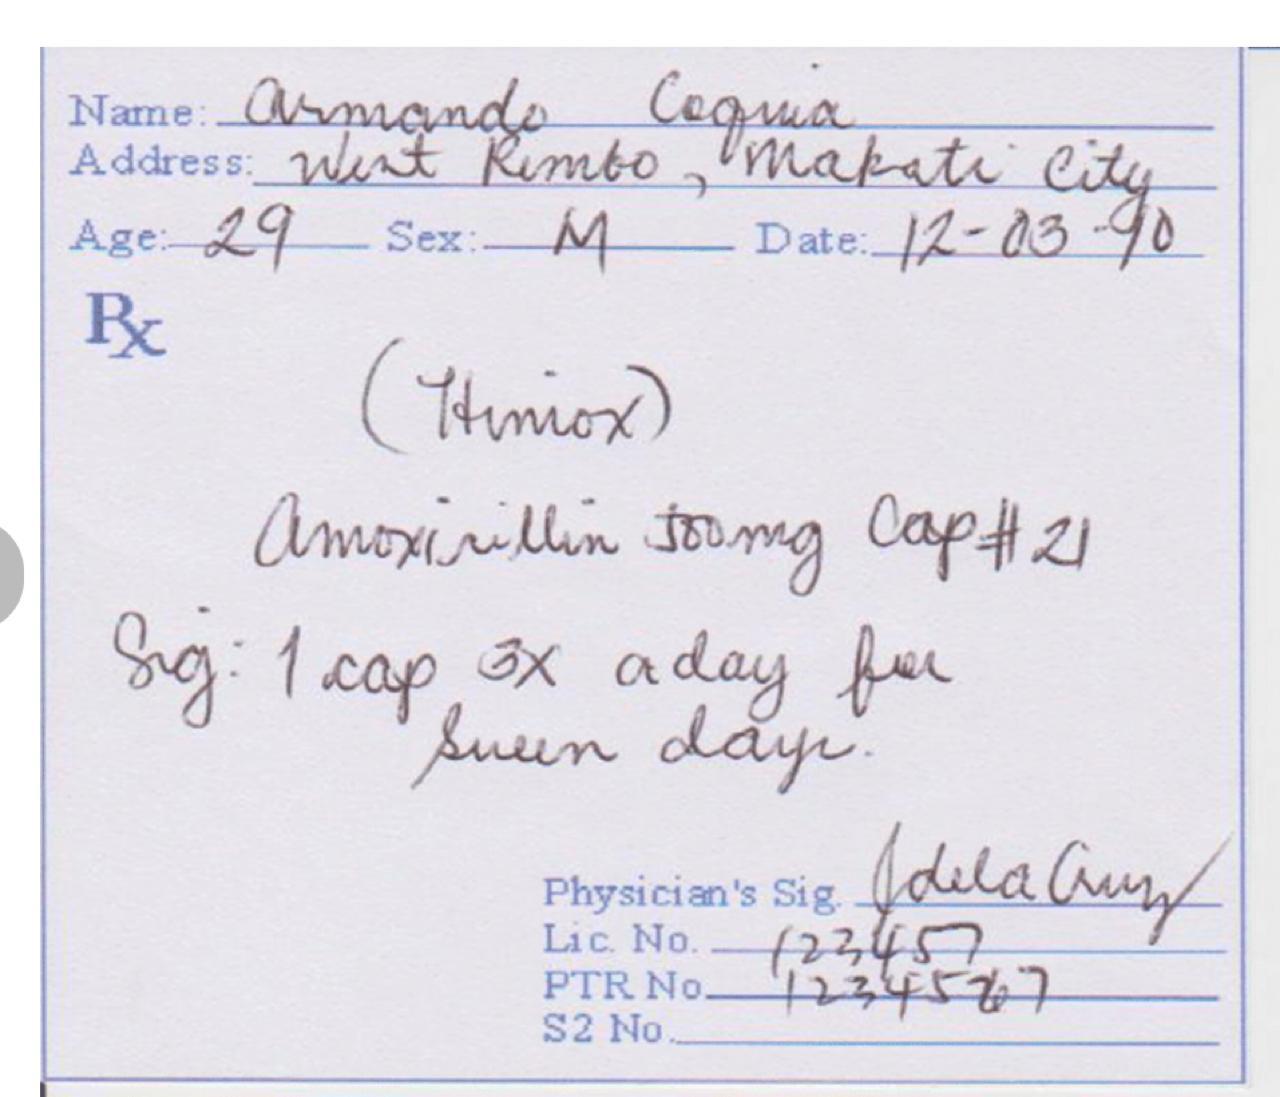 Name: Armando Coquia
Address: West Rembo, Makati City
Age: 29 Sex: M Date: 12-03-90
Rx
(Himox)
Amoxicillin 500mg Cap #21
Sig: 1 cap 3x a day for
seven days.
Physician's Sig. Jdela Cruz
Lic. No. 123457
PTR No. 1234567
S2 No.